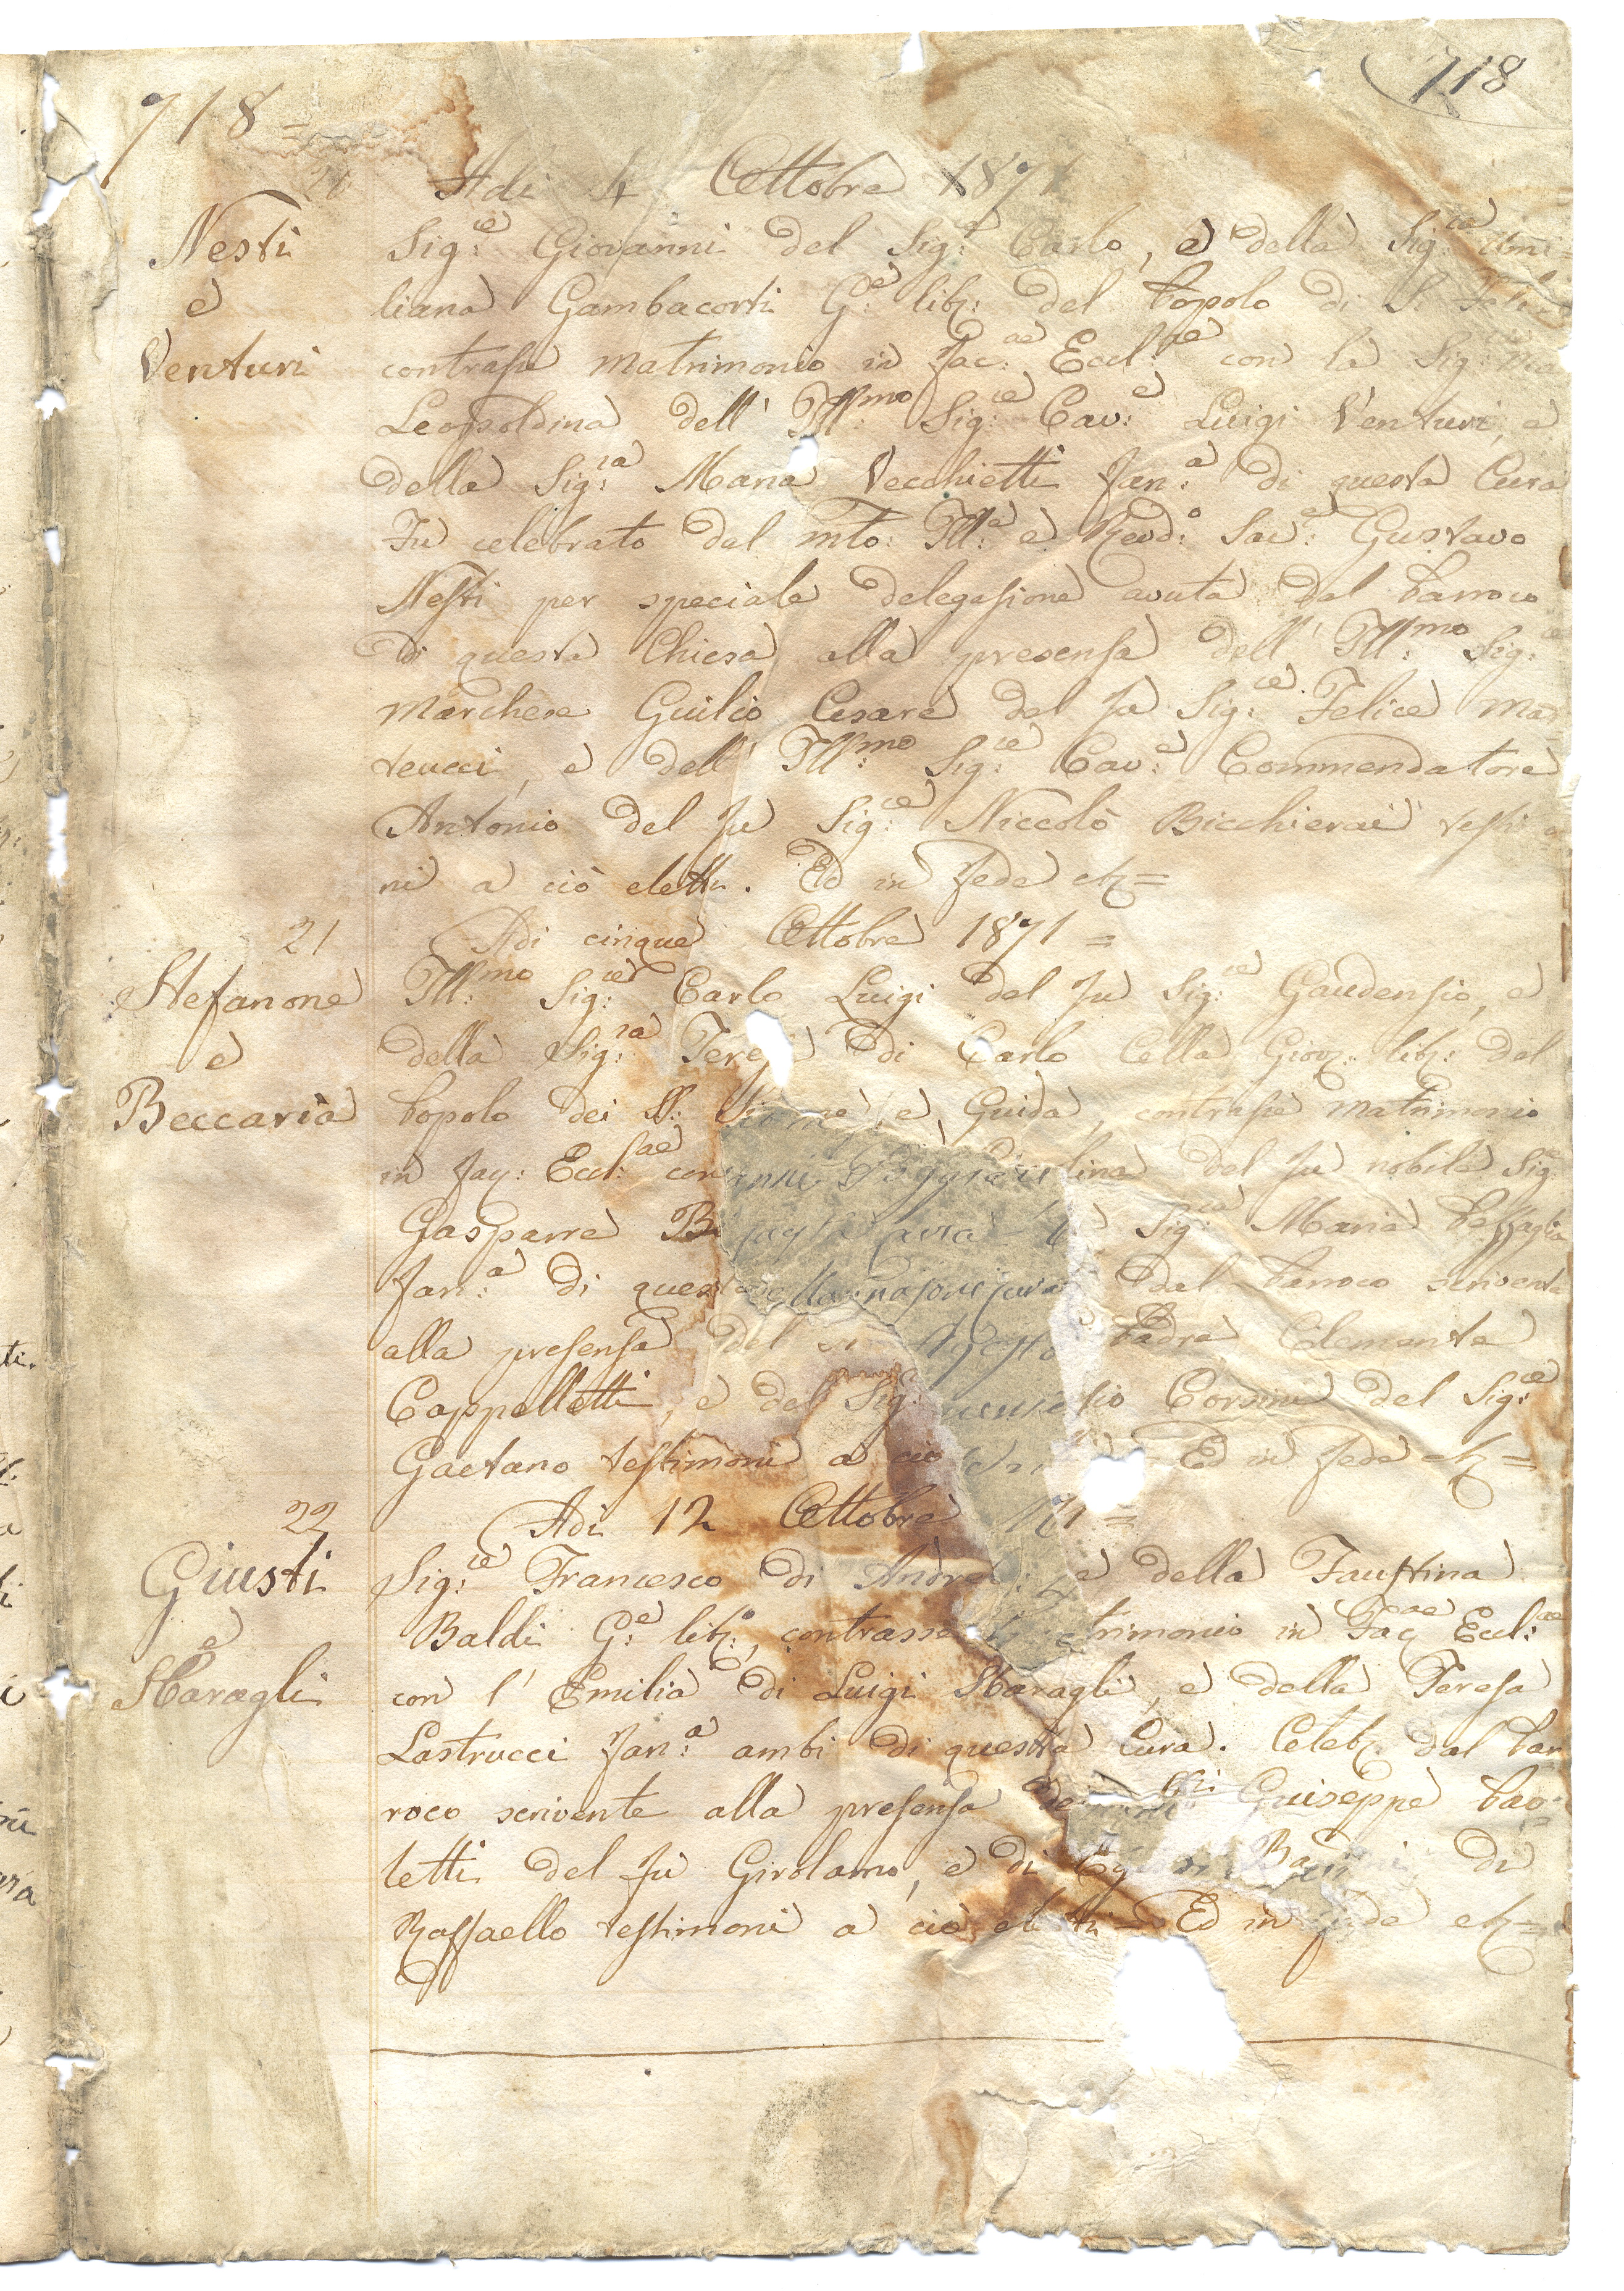 718
718 =
Adi 4 Ottobre 1871
Nesti
e
Venturi
Sig:re Giovanni del Sig:re Carlo, e della Sig:ra Emi
liana Gambacorti G:e lib: del Popolo di S. Felice
contrasse matrimonio in fac:ae Eccl:ae con la Sig:ra
Leopoldina dell' Ill:mo Sig:re Cav:e Luigi Venturi, e
della Sig:ra Maria Vecchietti fan:a di questa Cura
Fu celebrato dal mto: Ill:e e Revd:o Sac:e Gustavo
Nesti per speciale delegasione avuta dal Parroco
di questa Chiesa alla presensa dell' Ill:mo Sig:re
Marchese Guilio Cesare del fu Sig:re Felice Ma
teucci, e dell' Ill:mo Sig:re Cav:e Commendatore
Antonio del fu Sig:re Niccolò Bicchierai testimo
ni a ciò eletti. Ed in fede etc =
21
Adi cinque Ottobre 1871 =
Stefanone
e
Beccaria
Ill:mo Sig:re Carlo Luigi del fu Sig:re Gaudensio, e
della Sig:ra Tere di Carlo Cella Giov: lib: del
Popolo dei SS: Simone, e Guida, contrasse matrimonio
in fac: Eccl:sae con lina del fu nobile Sig:e
Gasparre B Sig:ra Maria
fan:a di questa dal Parroco scrivente
alla presensa del Padre Clemente
Cappelletti, e del Sig: sio Corsini del Sig:re
Gaetano testimoni a ciò Ed in fede etc =
22
Adi 12 Ottobre 71 =
Giusti
e
Sbaragli
Sig:re Francesco di Andrea e della Faustina
Baldi G:e lib:o, contrasse trimonio in Fac:ae Eccl:ae
con l' Emilia di Luigi Sbaragli, e della Teresa
Lastrucci fan:a ambi di questa Cura. Celeb: dal Par
roco scrivente alla presensa Guiseppe Pao
letti del fu Girolamo, e di di
Raffaello testimoni a ciò eletti = Ed in fede etc =